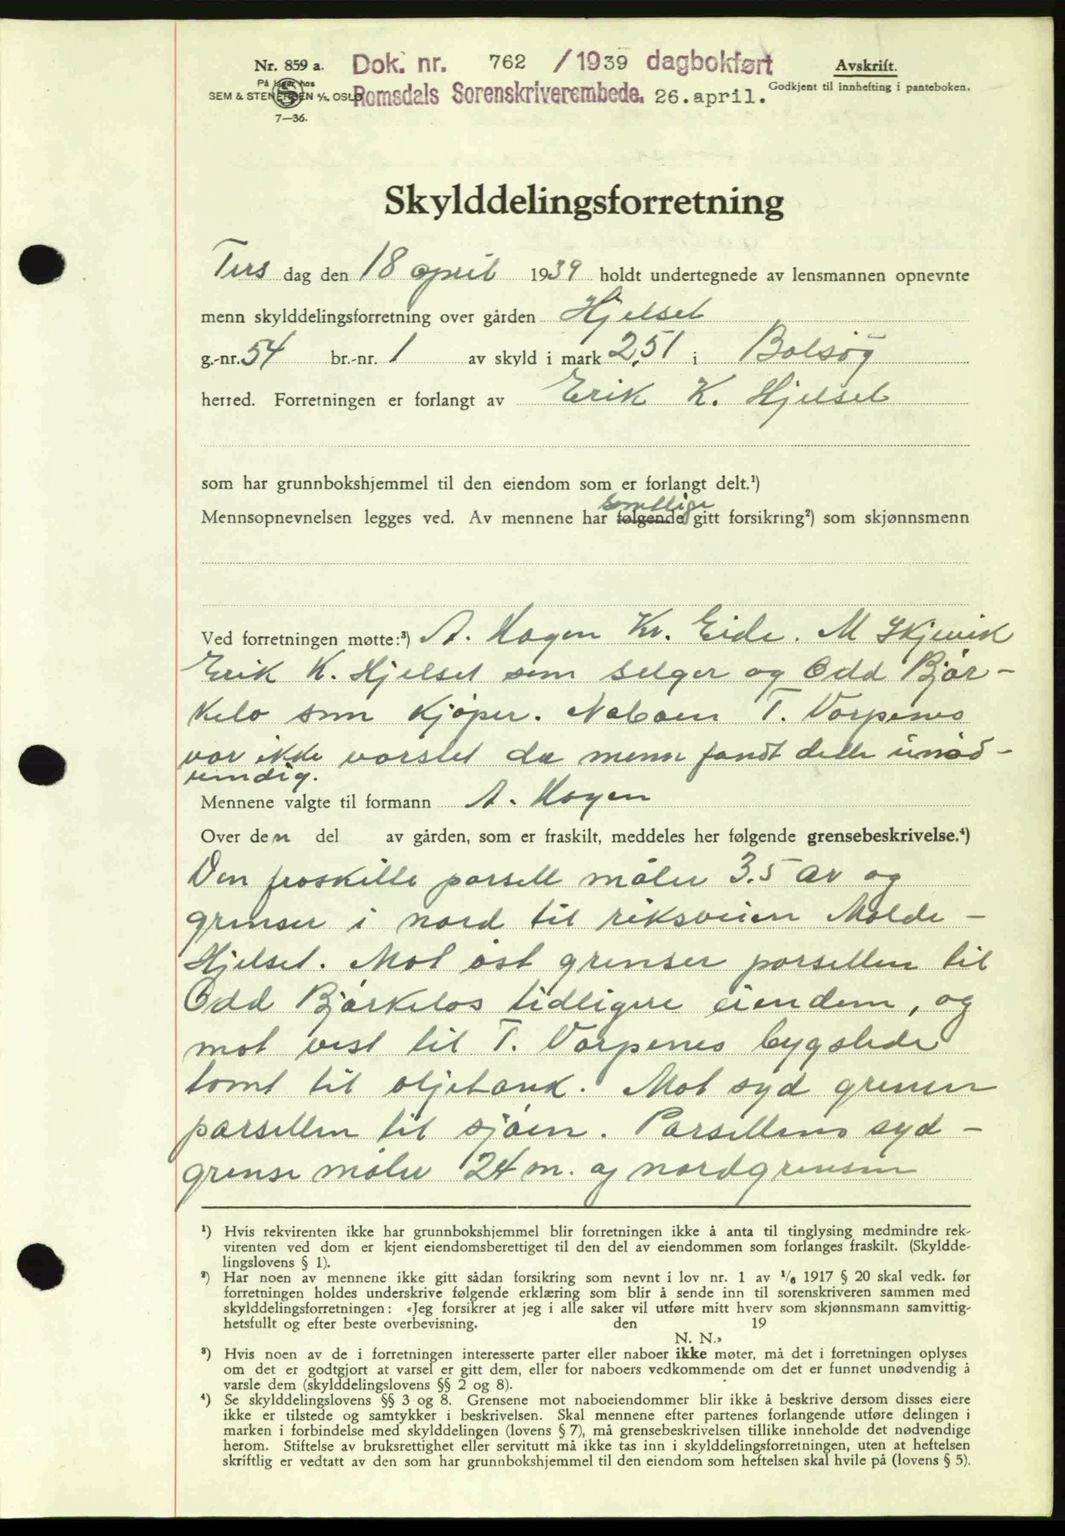 Nr. 859 a.
Dok. nr. 762 /1939 dagbokført
Avskrift.
På lager hos
SEM & STENERSEN A/S, OSLO
Romsdals Sorenskriverembede. 26.april.
Godkjent til innhefting i panteboken.
7—36.
Skylddelingsforretning
Tirs dag den 18 april 1939 holdt undertegnede av lensmannen opnevnte
menn skylddelingsforretning over gården Hjelset
g.-nr. 54 br.-nr. 1 av skyld i mark 2,51 i Bolsøy
herred. Forretningen er forlangt av Erik K. Hjelset
som har grunnbokshjemmel til den eiendom som er forlangt delt.¹)
samtlige
Mennsopnevnelsen legges ved. Av mennene har følgende gitt forsikring²) som skjønnsmenn
Ved forretningen møtte:³) A. Hagen Kr. Eide. M Skjevik
Erik K. Hjelset som selger og Odd Bjør-
kelo som kjøper. Naboen T. Varpenes
var ikke varslet da menn fandt dette unød-
vendig.
Mennene valgte til formann A. Hagen
Over den del av gården, som er fraskilt, meddeles her følgende grensebeskrivelse.⁴)
Den fraskilte parsell måler 3.5 ar og
grenser i nord til riksveien Molde-
Hjelset. Mot øst grenser parsellen til
Odd Bjørkelos tidligere eiendom, og
mot vest til T. Varpenes bygslede
tomt til oljetank. Mot syd grenser
parsellen til sjøen. Parsellens syd-
grense måler 24 m. og nordgrensen
¹) Hvis rekvirenten ikke har grunnbokshjemmel blir forretningen ikke å anta til tinglysing medmindre rek-
virenten ved dom er kjent eiendomsberettiget til den del av eiendommen som forlanges fraskilt. (Skyldde-
lingslovens § 1).
²) Har noen av mennene ikke gitt sådan forsikring som nevnt i lov nr. 1 av ¹/₆ 1917 § 20 skal vedk. før
forretningen holdes underskrive følgende erklæring som blir å sende inn til sorenskriveren sammen med
skylddelingsforretningen: «Jeg forsikrer at jeg i alle saker vil utføre mitt hverv som skjønnsmann samvittig-
hetsfullt og efter beste overbevisning. den 19
N. N.»
³) Hvis noen av de i forretningen interesserte parter eller naboer ikke møter, må det i forretningen oplyses
om det er godtgjort at varsel er gitt dem, eller for naboers vedkommende om det er funnet unødvendig å
varsle dem (skylddelingslovens §§ 2 og 8).
⁴) Se skylddelingslovens §§ 3 og 8. Grensene mot naboeiendommer blir ikke å beskrive dersom disses eiere
ikke er tilstede og samtykker i beskrivelsen. Skal mennene efter partenes forlangende utføre delingen i
marken i forbindelse med skylddelingen (lovens § 7), må grensebeskrivelsen tillike inneholde det nødvendige
herom. Stiftelse av bruksrettighet eller servitutt må ikke tas inn i skylddelingsforretningen, uten at heftelsen
skriftlig er vedtatt av den som har grunnbokshjemmel til den eiendom som heftelsen skal hvile på (lovens § 5).